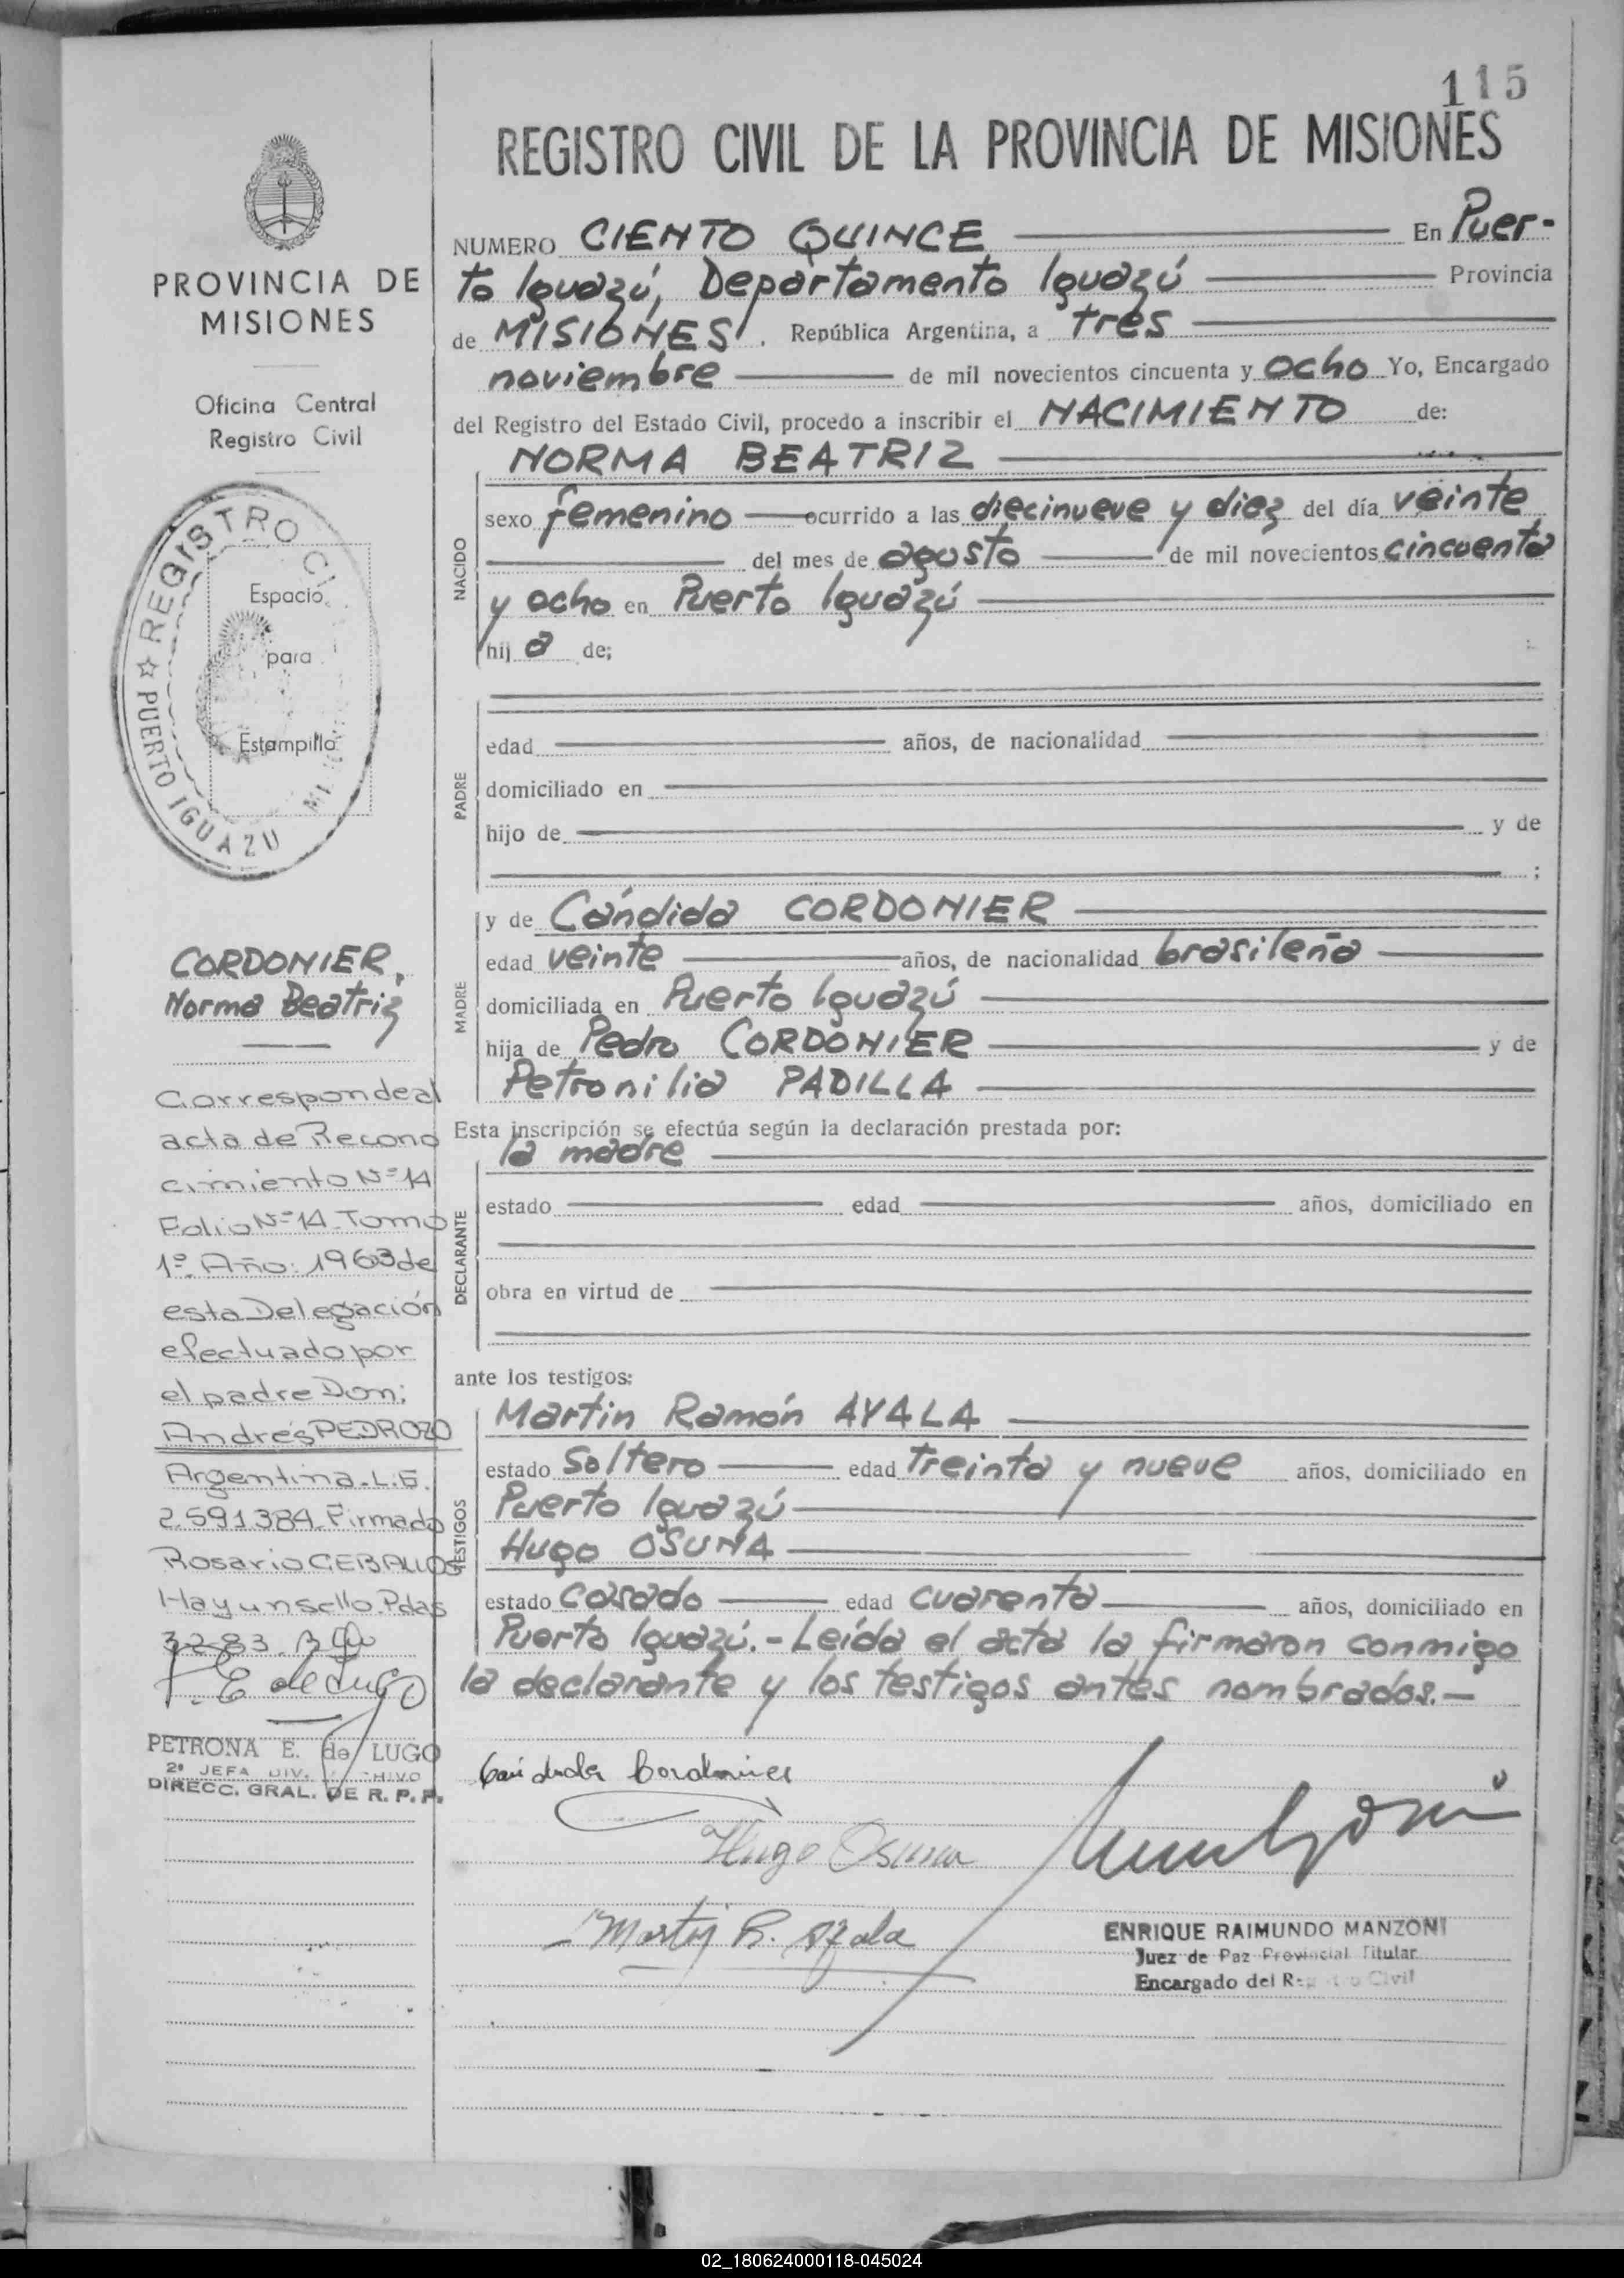 115
REGISTRO CIVIL DE LA PROVINCIA DE MISIONES
NUMERO CIENTO QUINCE En Puer-
to Iguazú, Departamento Iguazú Provincia
de MISIONES. República Argentina, a tres
noviembre de mil novecientos cincuenta y ocho Yo, Encargado
del Registro del Estado Civil, procedo a inscribir el NACIMIENTO de:
NORMA BEATRIZ
NACIDO
sexo femenino ocurrido a las diecinueve y diez del día veinte
del mes de agosto de mil novecientos cincuenta
y ocho en Puerto Iguazú
hij a de;
PADRE
edad años, de nacionalidad
domiciliado en
hijo de y de
;
MADRE
y de Cándida CORDONIER
edad veinte años, de nacionalidad brasileña
domiciliada en Puerto Iguazú
hija de Pedro CORDONIER y de
Petronilia PADILLA
Esta inscripción se efectúa según la declaración prestada por:
la madre
DECLARANTE
estado edad años, domiciliado en
obra en virtud de
ante los testigos:
TESTIGOS
Martin Ramón AYALA
estado Soltero edad treinta y nueve años, domiciliado en
Puerto Iguazú
Hugo OSUNA
estado Casado edad cuarenta años, domiciliado en
Puerto Iguazú.- Leída el acta la firmaron conmigo
la declarante y los testigos antes nombrados.-
Cándida Cordonier
Hugo Osuna
Martin R. Ayala
ENRIQUE RAIMUNDO MANZONI
Juez de Paz Provincial Titular
Encargado del Registro Civil
PROVINCIA DE
MISIONES
Oficina Central
Registro Civil
REGISTRO CIVIL
PUERTO IGUAZU
Espacio
para
Estampilla
CORDONIER,
Norma Beatriz
Corresponde al
acta de Recono
cimiento Nº 14
Folio Nº 14 Tomo
1º. Año: 1963 de
esta Delegación
efectuado por
el padre Don:
Andrés PEDROZO
Argentina. L.E.
2.591.384. Firmado
Rosario CEBALLOS
Hay un sello. Pdas
P. E de Lugo
PETRONA E. de LUGO
2º JEFA DIV. ARCHIVO
DIRECC. GRAL. DE R. P. P.
02_180624000118-045024